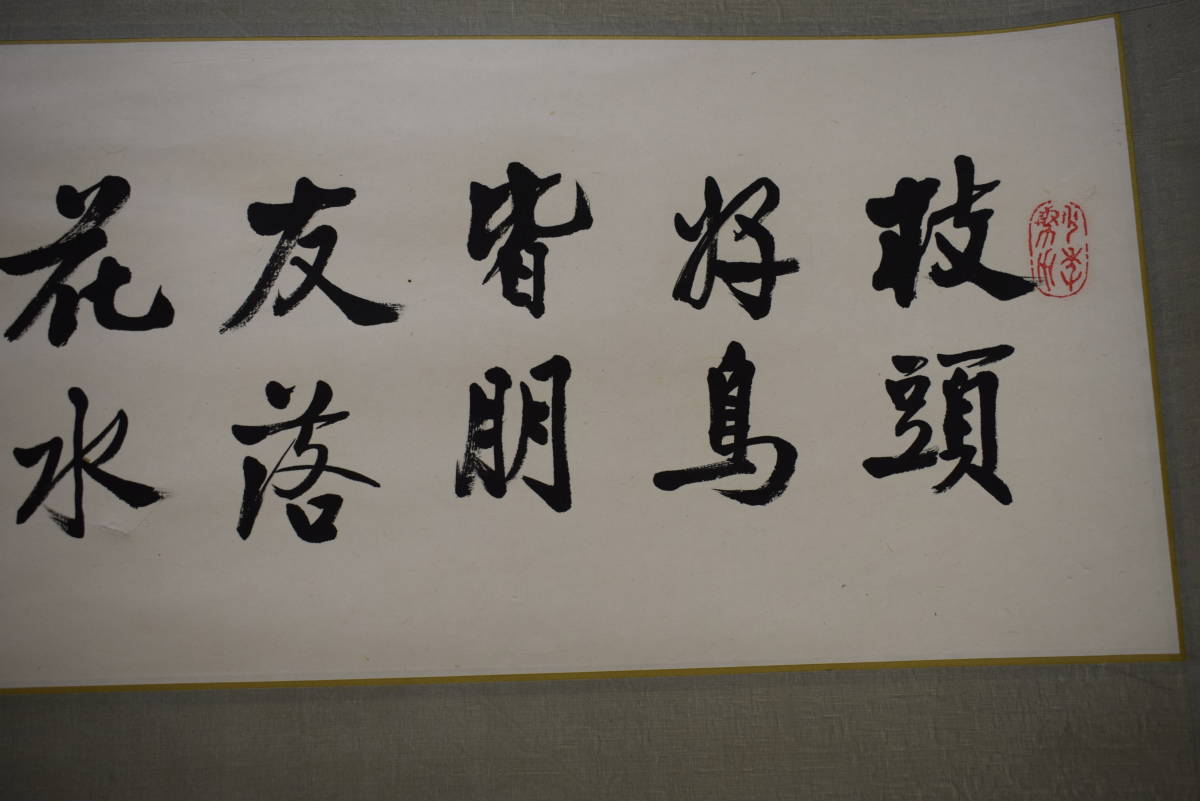 枝頭
好鳥
皆朋
友落
花水